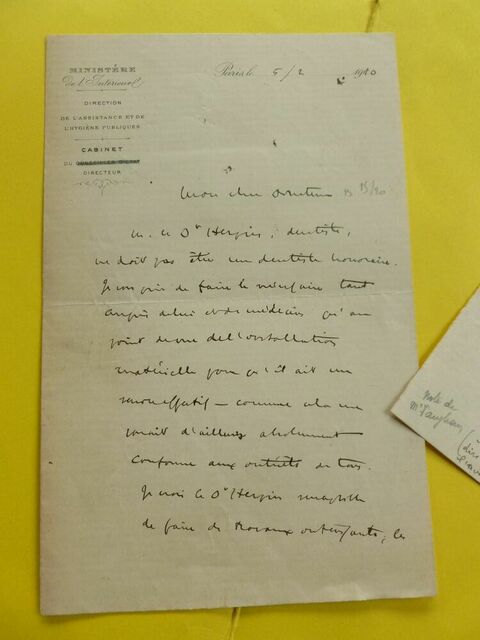 MINISTÈRE
de l'Intérieur
DIRECTION
DE L'ASSISTANCE ET DE
L'HYGIÈNE PUBLIQUES
CABINET
DU CONSEILLER D'ETAT
DIRECTEUR
Paris le 5/2 1910
Mon cher Directeur
M. le Dr , dentiste,
ne doit pas être un dentiste honoraire.
Je vous prie de faire le nécessaire tant
auprès de lui et de médecins qu'au
point de vue de l'installation
matérielle pour qu'il ait un
service effectif — comme cela me
paraît d'ailleurs absolument
conforme aux intérêts de tous.
Je crois le Dr
de faire de travaux , les
Note de